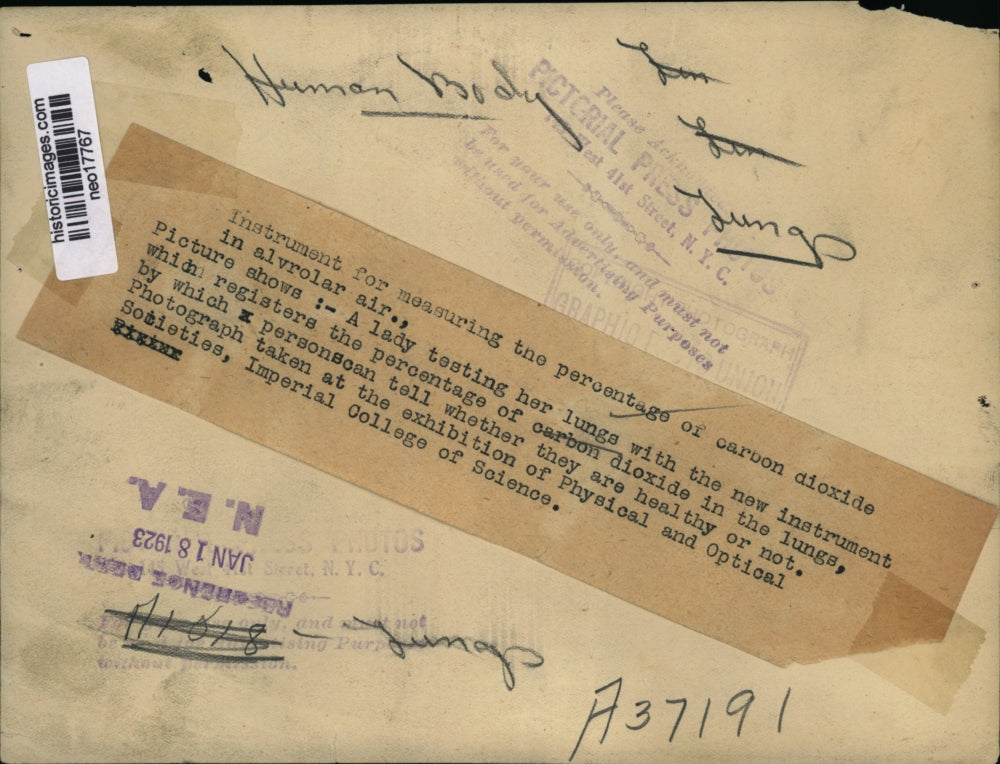 historicimages.com
neo17767
Human Body
Lungs
Please
PICTORIAL PRESS
West 41st Street, N. Y. C.
For your use only, and must not
be used for Advertising Purposes
without permission.
PHOTOGRAPH
GRAPHIC UNION
Instrument for measuring the percentage of carbon dioxide
in alvrolar air.,
Picture shows :- A lady testing her lungs with the new instrument
which registers the percentage of carbon dioxide in the lungs,
by which x personscan tell whether they are healthy or not.
Photograph taken at the exhibition of Physical and Optical
Societies, Imperial College of Science.
N. E. A.
JAN 18 1923
REFERENCE DEPT.
PRESS PHOTOS
West 41st Street, N. Y. C.
only, and must not
Advertising Purposes
without permission.
Lungs
A37191